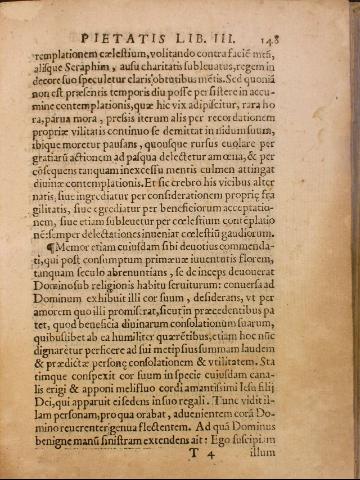 PIETATIS LIB. III. 148
templationem cælestium, volitando contra faciē meā,
alisque Seraphim, ausu charitatis subleuatus, regem in
decore suo speculetur claris obtutibus mētis. Sed quoniā
non est præsentis temporis diu posse persistere in accu-
mine contemplationis, quæ hic vix adipiscitur, rara ho
ra, parua mora, pressis iterum alis per recordationem
propriæ vilitatis continuo se demittat in nidum suum,
ibique moretur pausans, quousque rursus euolare per
gratiarū actionem ad pascua delectetur amœna, & per
cōsequens tanquam in excessu mentis culmen attingat
diuinæ contemplationis. Et sic crebro his vicibus alter
natis, siue ingrediatur per considerationem proprię fra
gilitatis, siue egrediatur per beneficiorum acceptatio-
nem, siue etiam subleuetur per cœlestium contēplatio
nē: semper delectationes inueniat cœlestiū gaudiorum.
¶ Memor etiam cuiusdam sibi deuotius commenda-
ti, qui post consumptum primæuæ iuuentutis florem,
tanquam seculo abrenuntians, se de inceps deuouerat
Domino sub religionis habitu seruiturum: conuersa ad
Dominum exhibuit illi cor suum, desiderans, vt per
amorem quo illi promiserat, sicut in præcedentibus pa
tet, quod beneficia diuinarum consolationum suarum,
quibuslibet ab ea humiliter quærētibus, etiam hoc nūc
dignaretur perficere ad sui metipsius summam laudem
& prædictæ personę consolationem & vtilitatem. Sta
timque conspexit cor suum in specie cuiusdam cana-
lis erigi & apponi melifluo cordi amantissimi Iesu filij
Dei, qui apparuit ei sedens in suo regali. Tunc vidit il-
lam personam, pro qua orabat, aduenientem corā Do-
mino reuerenter genua flectentem. Ad quā Dominus
benigne manū sinistram extendens ait: Ego suscipiam
T 4 illum